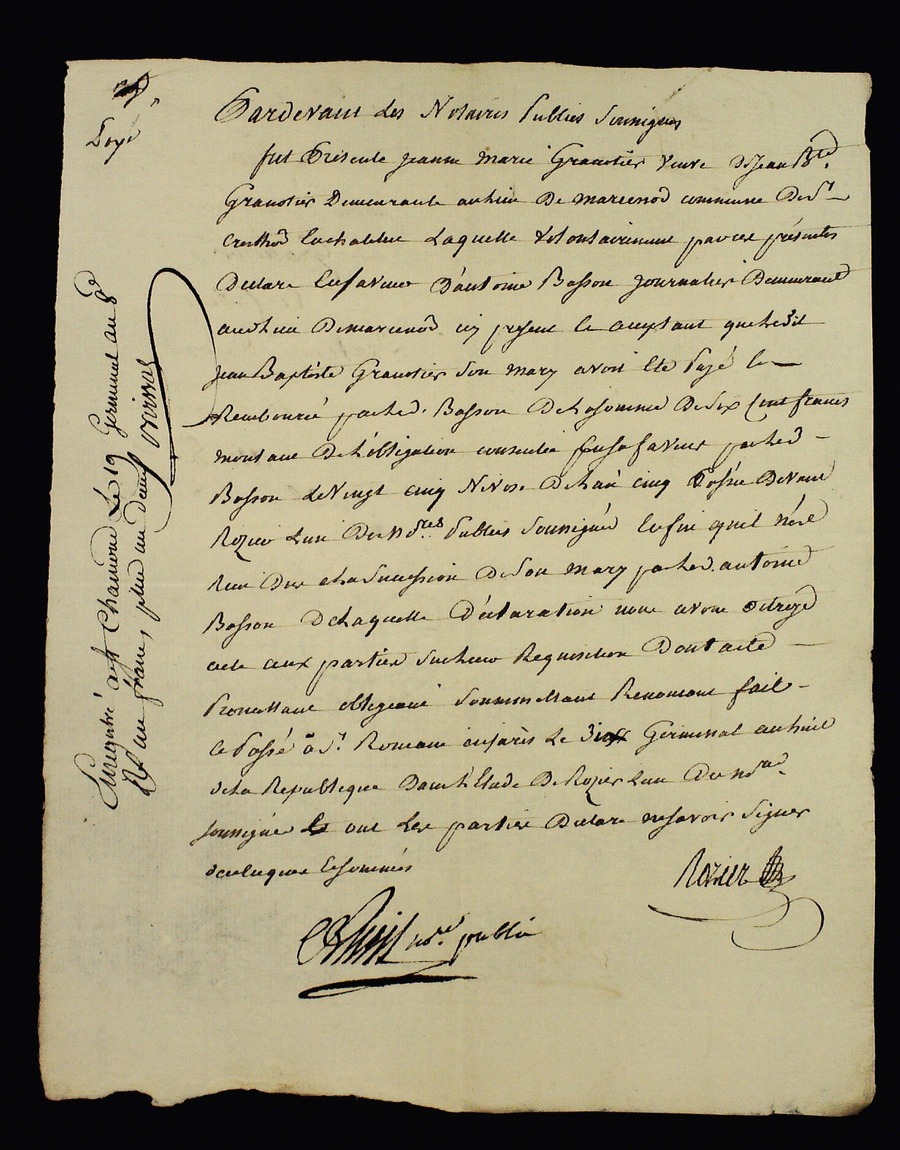 Payé
Pardevant Les Notaires Publics Soussignes
fut Présente jeanne marie Granotier veuve De jean Bte
Granotier Demeurante au lieu De marcenod commune De St
en chatelux Laquelle volontairement par ces présentes
Declare En faveur D'antoine Basson journalier Demeurant
audit lieu De marcenod icy present Et acceptant que ledit
jean Baptiste Granotier Son mary avoit Eté Payé Et
Rembourcé par led. Basson De la somme De Six Cent francs
montant De L'obligation consentie En sa faveur par led
Basson Le vingt cinq Nivose De L'an cinq Passée Devant
Rozier L'un Des Nores Publics Soussigné En fin qu'il n'est
Rien Due a La Succession De Son mary par led. antoine
Basson De Laquelle Déclaration nous avons octroyé
acte aux parties Sur Leur Requisition Dont acte
Promettant obligeant Soummettant Renoncant fait
Et Passé a St Romain en jarès Le Dix Germinal an huit
De La Republique Dans L'Etude De Rozier L'un Des Nores
soussigné Et ont Les parties Declaré ne savoir Signer
De ce Enquis Et Sommés
Rozier
nore public
Enregistré à St Chamond Le 19 Germinal an 8e
Rf un franc, plus un Decime